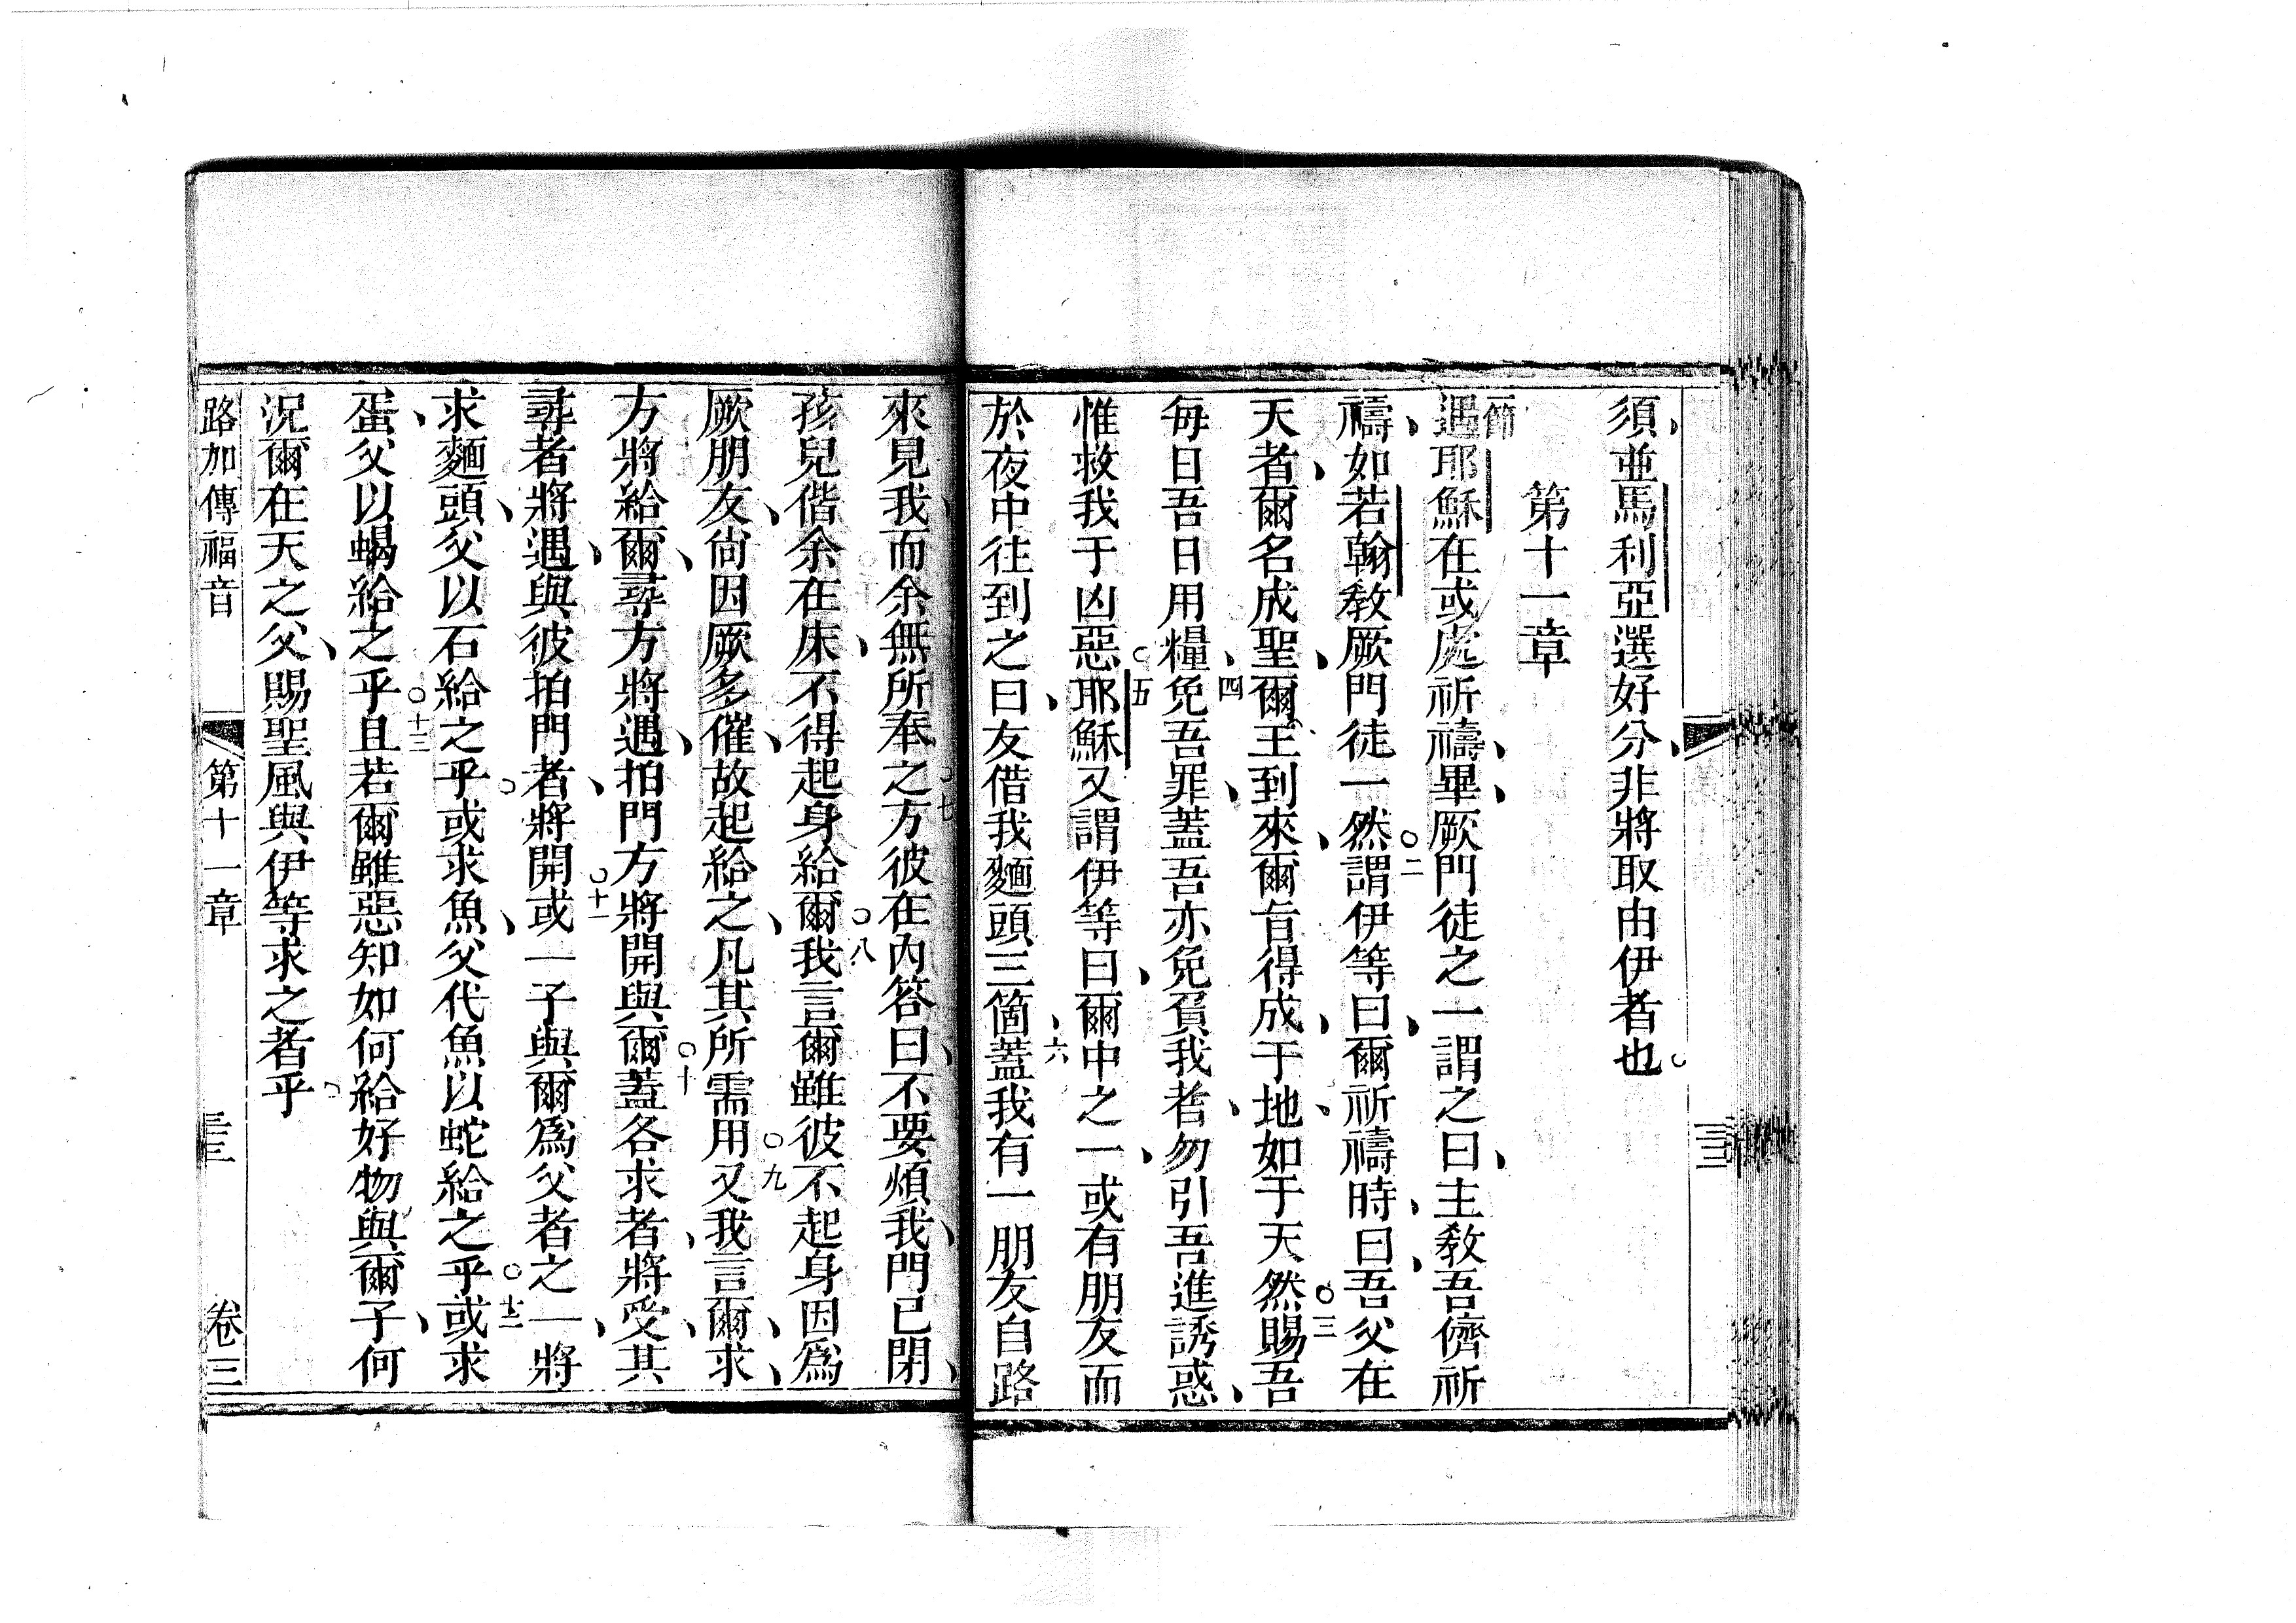 須、並馬利亞選好分、非將取由伊者也。
第十一章
一節遇耶穌在或處祈禱、畢、厥門徒之一謂之曰、主敎吾儕祈
禱、如若翰敎厥門徒一然○二謂伊等曰、爾祈禱時、曰、吾父在
天者、爾名成聖、爾王到來、爾旨得成、于地、如于天然○三賜吾
每日吾日用糧、四免吾罪、蓋吾亦免負我者、勿引吾進誘惑、
惟救我于凶惡○五耶穌又謂伊等曰、爾中之一、或有朋友而
於夜中往到之、曰友借我麵頭三箇、六蓋我有一朋友自路
來見、我而余無所奉之○七方彼在內答曰、不要煩我、門已閉、
孩兒偕余在床、不得起身給爾○八我言爾雖彼不起身因爲
厥朋友、尙因厥多催、故起給之、凡其所需用○九又我言爾、求、
方將給爾、尋方將遇、拍門方將開與爾○十蓋各求者、將受、其
尋者將遇、與彼拍門者、將開○十一或一子與爾爲父者之一、將
求麵頭、父以石給之乎。或求魚、父代魚以蛇給之乎○十二或求
蛋、父以蝎給之乎○十三且若爾雖惡知如何給好物與爾子、何
況爾在天之父、賜聖風與伊等求之者乎。
路加傳福音
第十一章
三十三
卷三